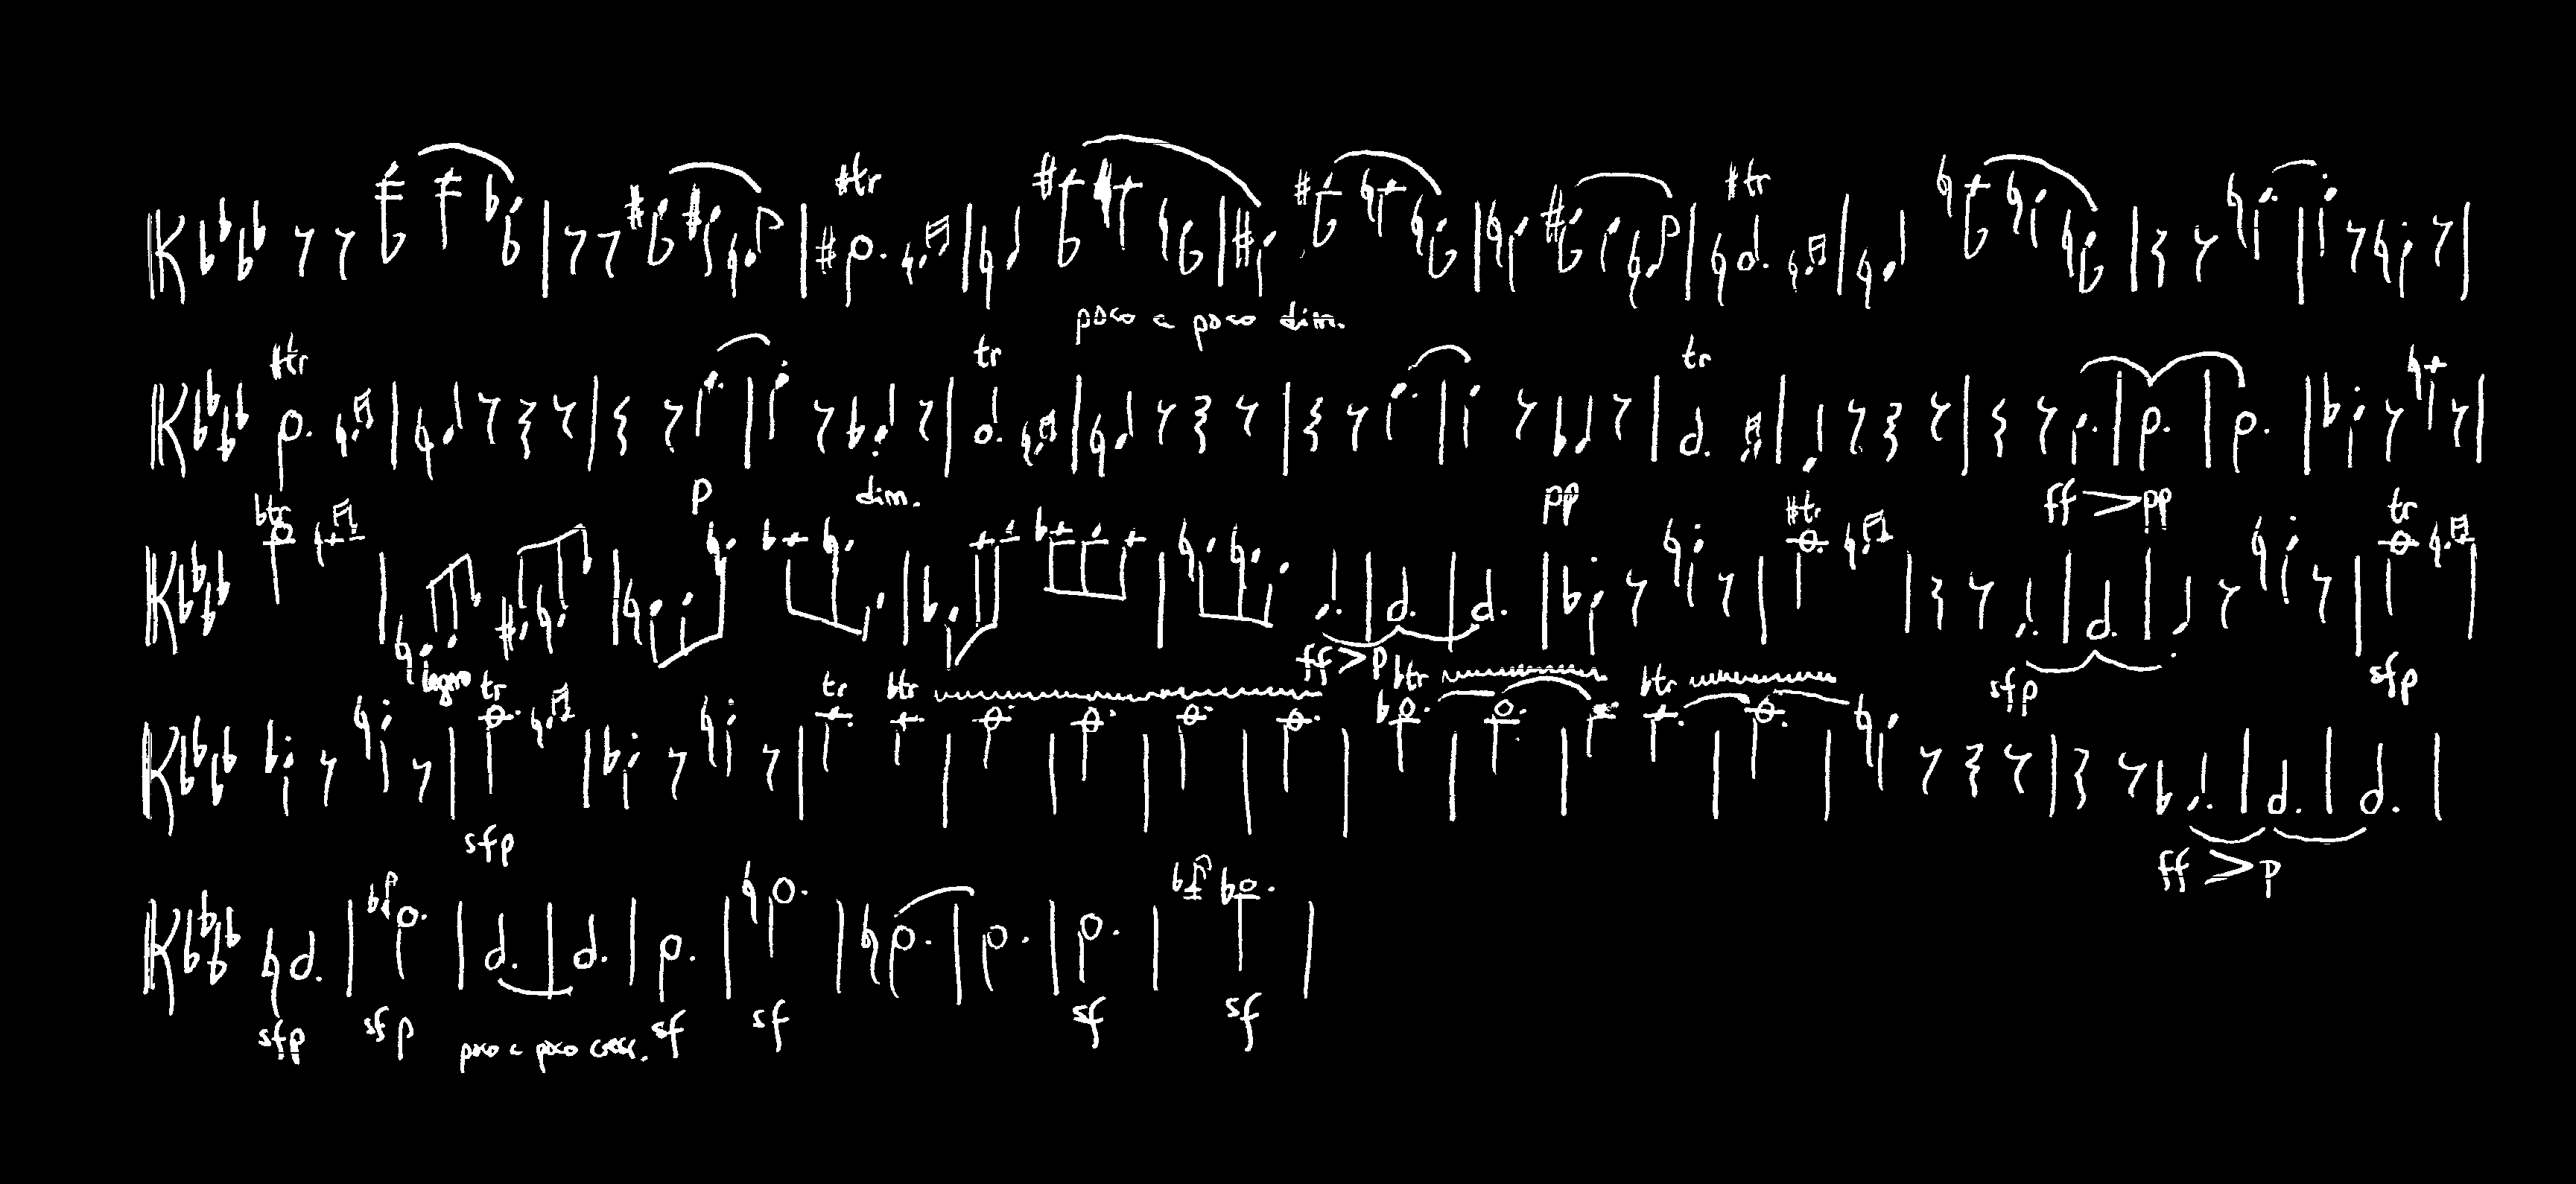 tr tr
poco a poco dim.
tr tr tr
p dim. pp ff > pp
tr tr tr
legno ff > p sfp sfp
tr tr tr tr tr
sfp ff > p
sfp sfp poco a poco cresc. sf sf sf sf